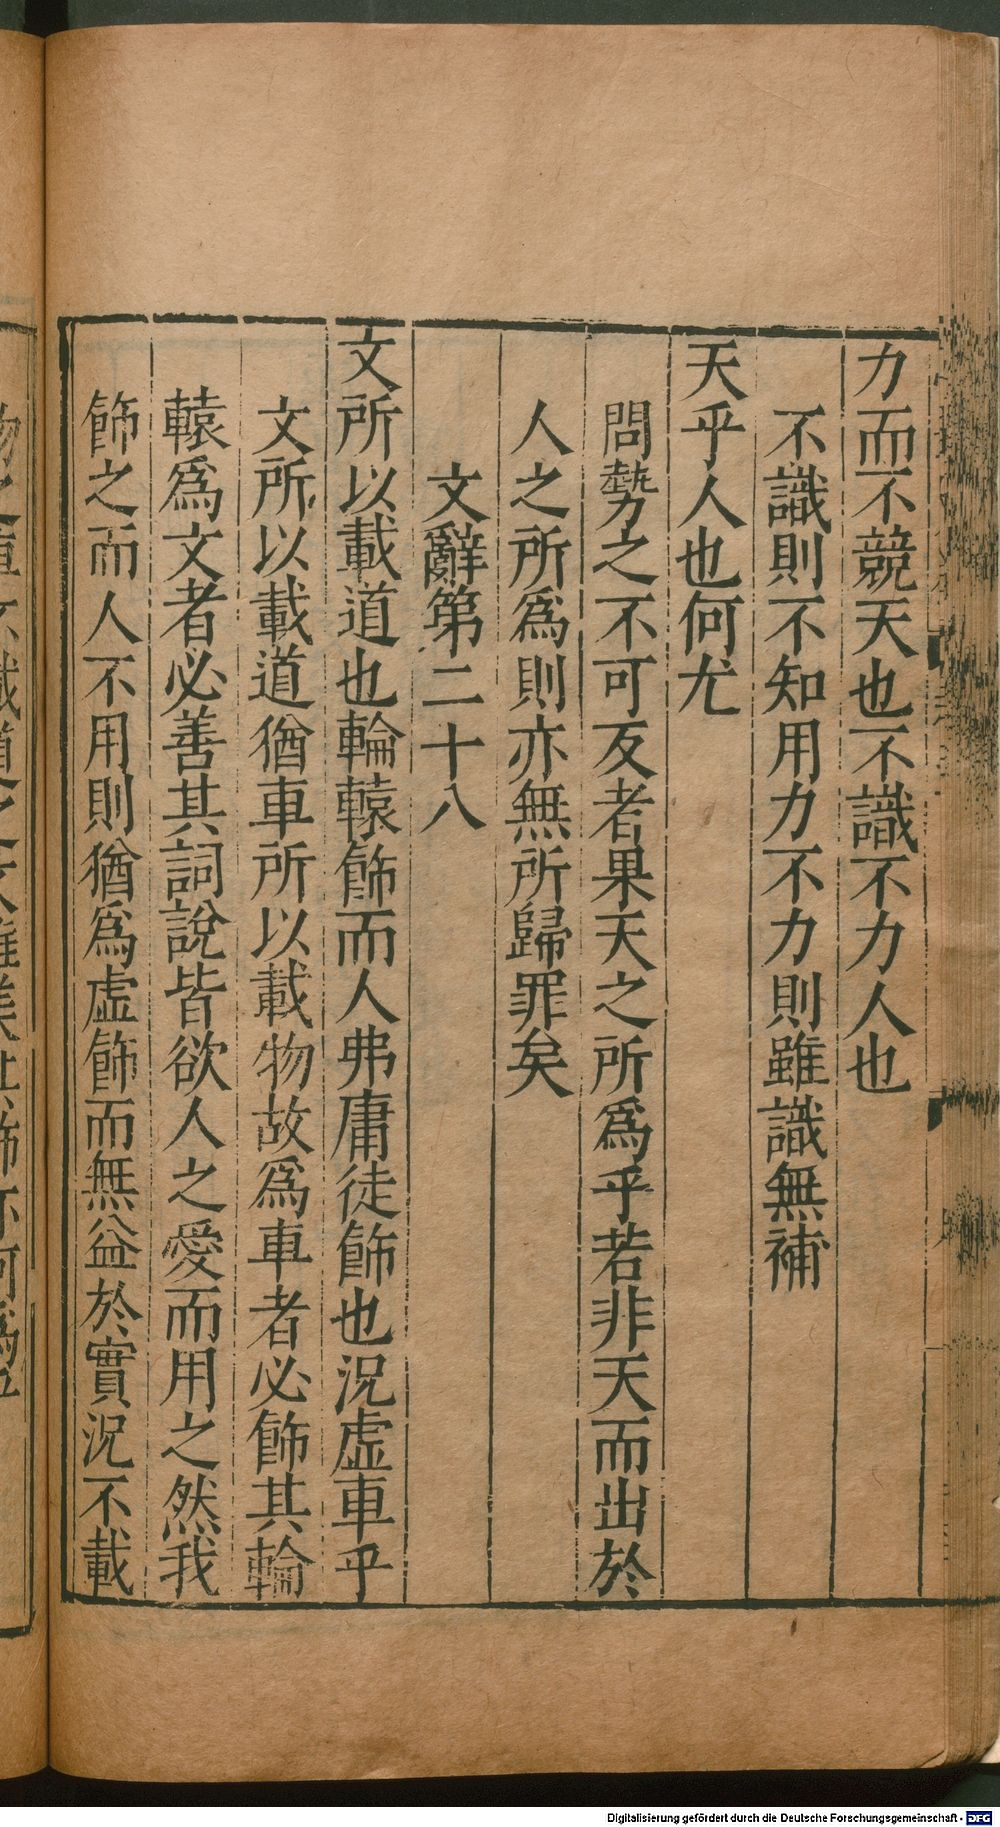 力而不競天也不識不力人也
不識則不知用力不力則雖識無補
天乎人也何尤
問勢之不可反者果天之所爲乎若非天而出於
人之所爲則亦無所歸罪矣
文辭第二十八
文所以載道也輪轅飾而人弗庸徒飾也況虚車乎
文所以載道猶車所以載物故爲車者必飾其輪
轅爲文者必善其詞說皆欲人之愛而用之然我
飾之而人不用則猶爲虚飾而無益於實況不載
Digitalisierung gefördert durch die Deutsche Forschungsgemeinschaft - DFG